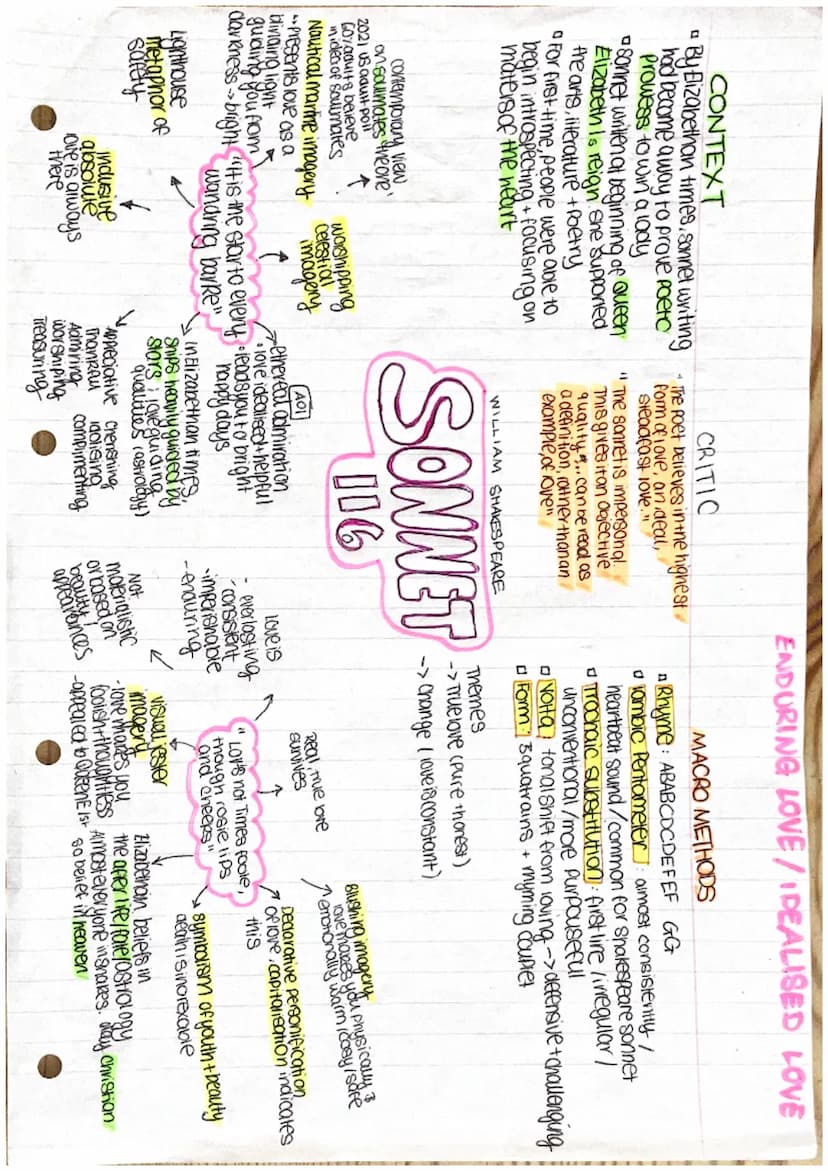 ENDURING LOVE / IDEALISED LOVE
CONTEXT
By Elizabethan times, sonnet writing
had become a way to prove poetic
prowess to win a lady
Sonnet written at beginning of Queen
Elizabeth Is reign. She supported
the arts, literature + poetry
For first time, people were able to
begin introspecting + focusing on
matters of the heart
CRITIC
"The poet believes in the highest
form of love, an ideal,
steadfast love."
"The sonnet is impersonal.
This gives it an objective
quality", can be read as
a definition, rather than an
example, of love"
MACRO METHODS
Rhyme: ABABCDCDEFEF GG
Iambic Pentameter: almost consistently /
heartbeat sound / common for Shakespeare sonnet
Trochaic substitution: first line / irregular /
unconventional / more purpouseful
Volta: tonal shift from loving -> defensive + challenging
Form: 3 quatrains + rhyming couplet
WILLIAM SHAKESPEARE
SONNET
116
Themes
-> True love (pure + honest)
-> Change (love is constant)
contemporary view
on soulmates theone'
2021 US adult poll
60% adults believe
in idea of soulmates
Nautical marine imagery
"Presents love as a
blinding light
guiding you from
darkness -> bright
worshipping
celestial
imagery
"It is the star to every
wandring barke"
Lighthouse
metaphor of
safety
inclusive
absolute
love is always
there
AO1
ethereal admiration
love idealised + helpful
leads you to bright
happy days
in Elizabethan times,
ships heavily guided by
stars; love guiding
qualities (astrology)
Appreciative
Thankful
Admiring
worshipping
Treasuring
cherishing
idolising
complimenting
Real, true love
survives
blushing imagery
love makes you physically &
emotionally warm / cosy / safe
Love is
- everlasting
- consistent
- imperishable
- enduring
"Lov's not Times foole,
though rosie lips
and cheeks"
Decorative personification
of love, capitalisation indicates
this
Not
materialistic
or based on
beauty /
appearances
visual jester
imagery
- love makes you
foolish + thoughtless
- appealed to Queen E 1st
symbolism of youth + beauty
death is inexorable
Elizabethan beliefs in
the after life / fate / astrology
Almost everyone in shakes. day christian
so belief in heaven